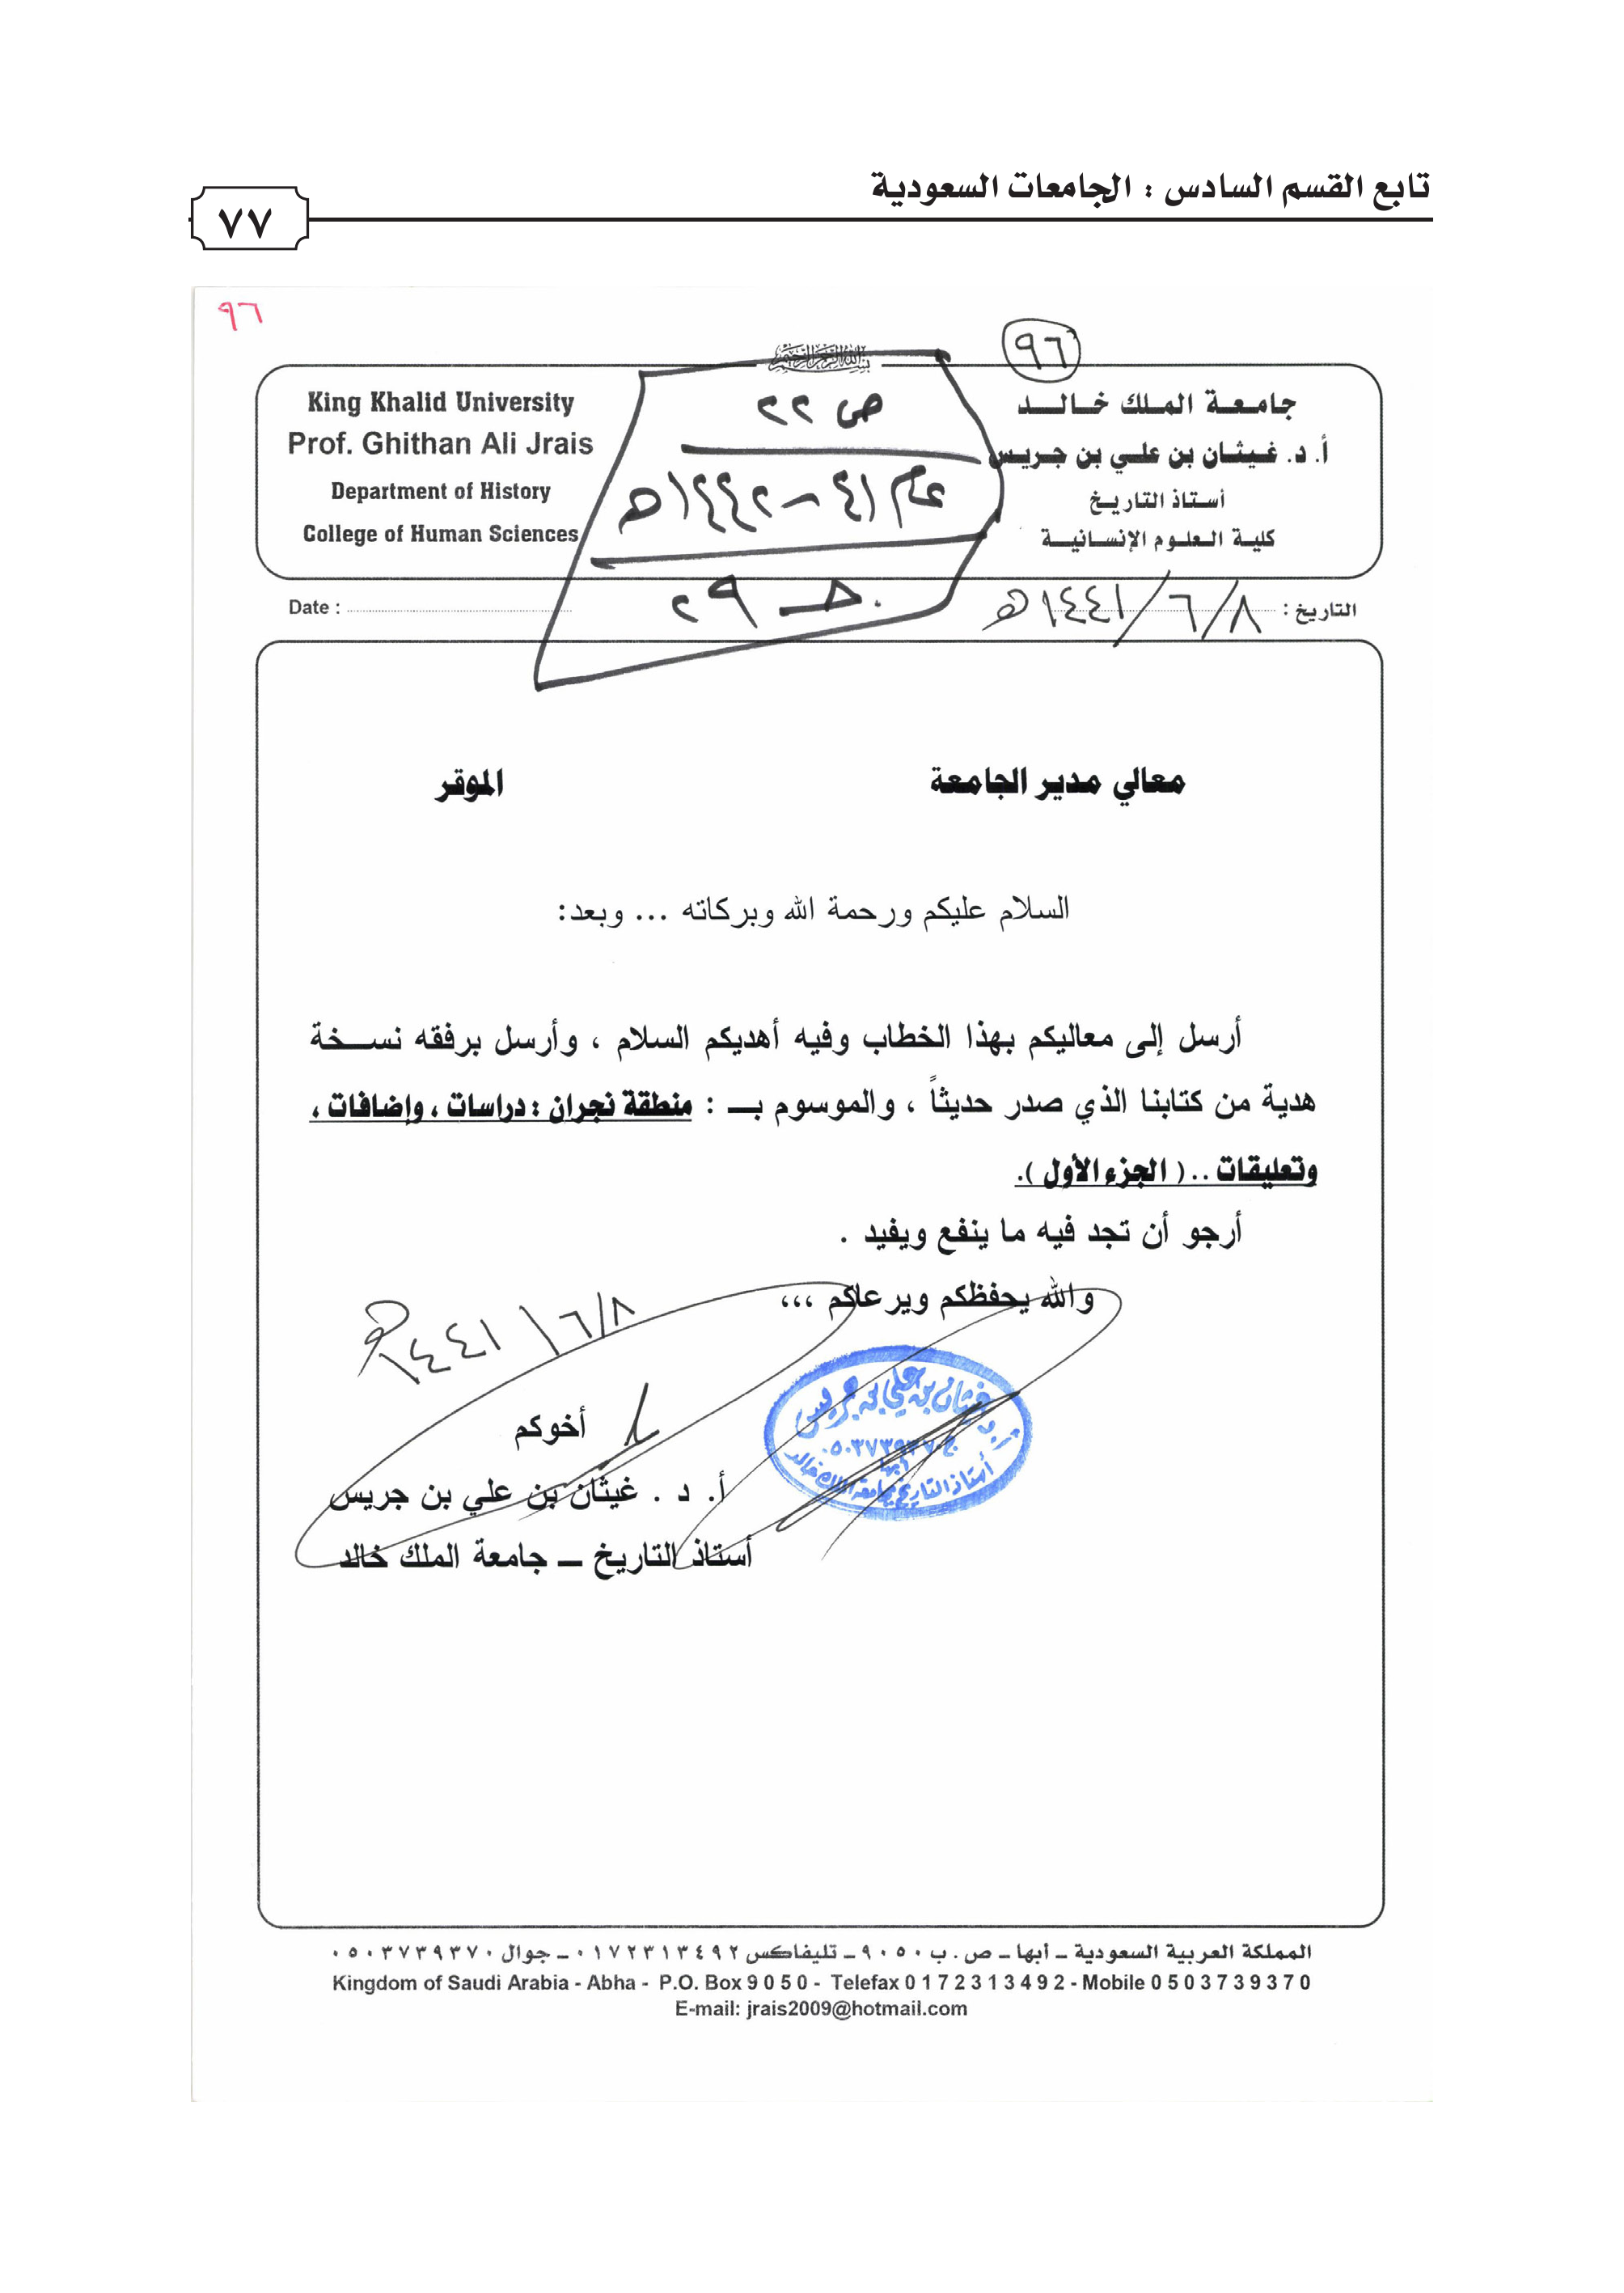 تابع القسم السادس : الجامعات السعودية
٧٧
٩٦
٩٦
بسم الله الرحمن الرحيم
جامعة الملك خالد
أ. د. غيثان بن علي بن جريس
أستاذ التاريخ
كلية العلوم الإنسانية
King Khalid University
Prof. Ghithan Ali Jrais
Department of History
College of Human Sciences
ص ٢٢
عام ٤١ – ١٤٤٢هـ
٢٩
التاريخ : ٨/٦/١٤٤١هـ
Date :
معالي مدير الجامعة الموقر
السلام عليكم ورحمة الله وبركاته ... وبعد:
أرسل إلى معاليكم بهذا الخطاب وفيه أهديكم السلام ، وأرسل برفقه نسخة
هدية من كتابنا الذي صدر حديثاً ، والموسوم بـ : منطقة نجران : دراسات ، وإضافات ،
وتعليقات .. ( الجزء الأول ).
أرجو أن تجد فيه ما ينفع ويفيد .
والله يحفظكم ويرعاكم ،،،
٨/٦/١٤٤١هـ
أخوكم
أ. د . غيثان بن علي بن جريس
أستاذ التاريخ – جامعة الملك خالد
أ.د غيثان بن علي بن جريس
ج ٠٥٠٣٧٣٩٣٧٠
أبها
أستاذ التاريخ بجامعة الملك خالد
المملكة العربية السعودية – أبها – ص . ب ٩٠٥٠ – تليفاكس ٠١٧٢٣١٣٤٩٢ – جوال ٠٥٠٣٧٣٩٣٧٠
Kingdom of Saudi Arabia - Abha - P.O. Box 9 0 5 0 - Telefax 0 1 7 2 3 1 3 4 9 2 - Mobile 0 5 0 3 7 3 9 3 7 0
E-mail: jrais2009@hotmail.com